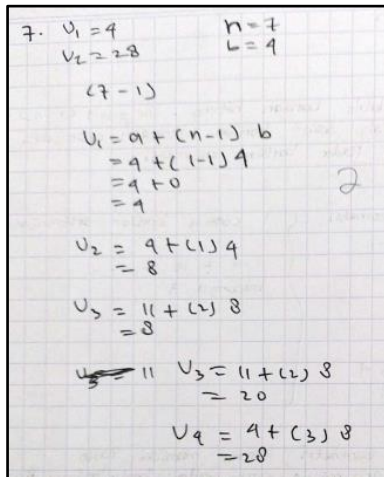 7. U₁ = 4 n = 7
U₂ = 28 b = 4
(7-1)
U₁ = a + (n-1) b
= 4 + (1-1) 4
= 4 + 0
= 4
2
U₂ = 4 + (1) 4
= 8
U₃ = 11 + (2) 8
= 8
11 U₃ = 11 + (2) 8
= 20
U₄ = 4 + (3) 8
= 28